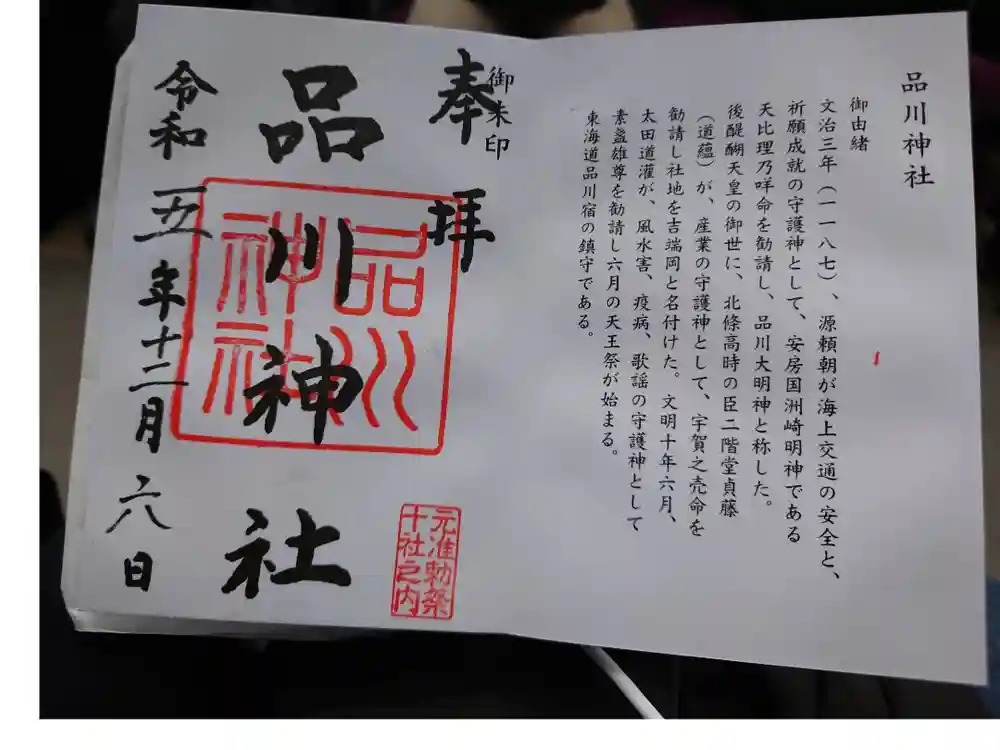 品川神社
御由緒
文治三年（一一八七）、源頼朝が海上交通の安全と、
祈願成就の守護神として、安房国洲崎明神である
天比理乃咩命を勧請し、品川大明神と称した。
後醍醐天皇の御世に、北條高時の臣二階堂貞藤
（道蘊）が、産業の守護神として、宇賀之売命を
勧請し社地を吉端岡と名付けた。文明十年六月、
太田道灌が、風水害、疫病、歌謡の守護神として
素盞雄尊を勧請し六月の天王祭が始まる。
東海道品川宿の鎮守である。
御朱印
奉拝
品川神社
品川
神社
元准勅祭
十社之内
令和五年十二月六日